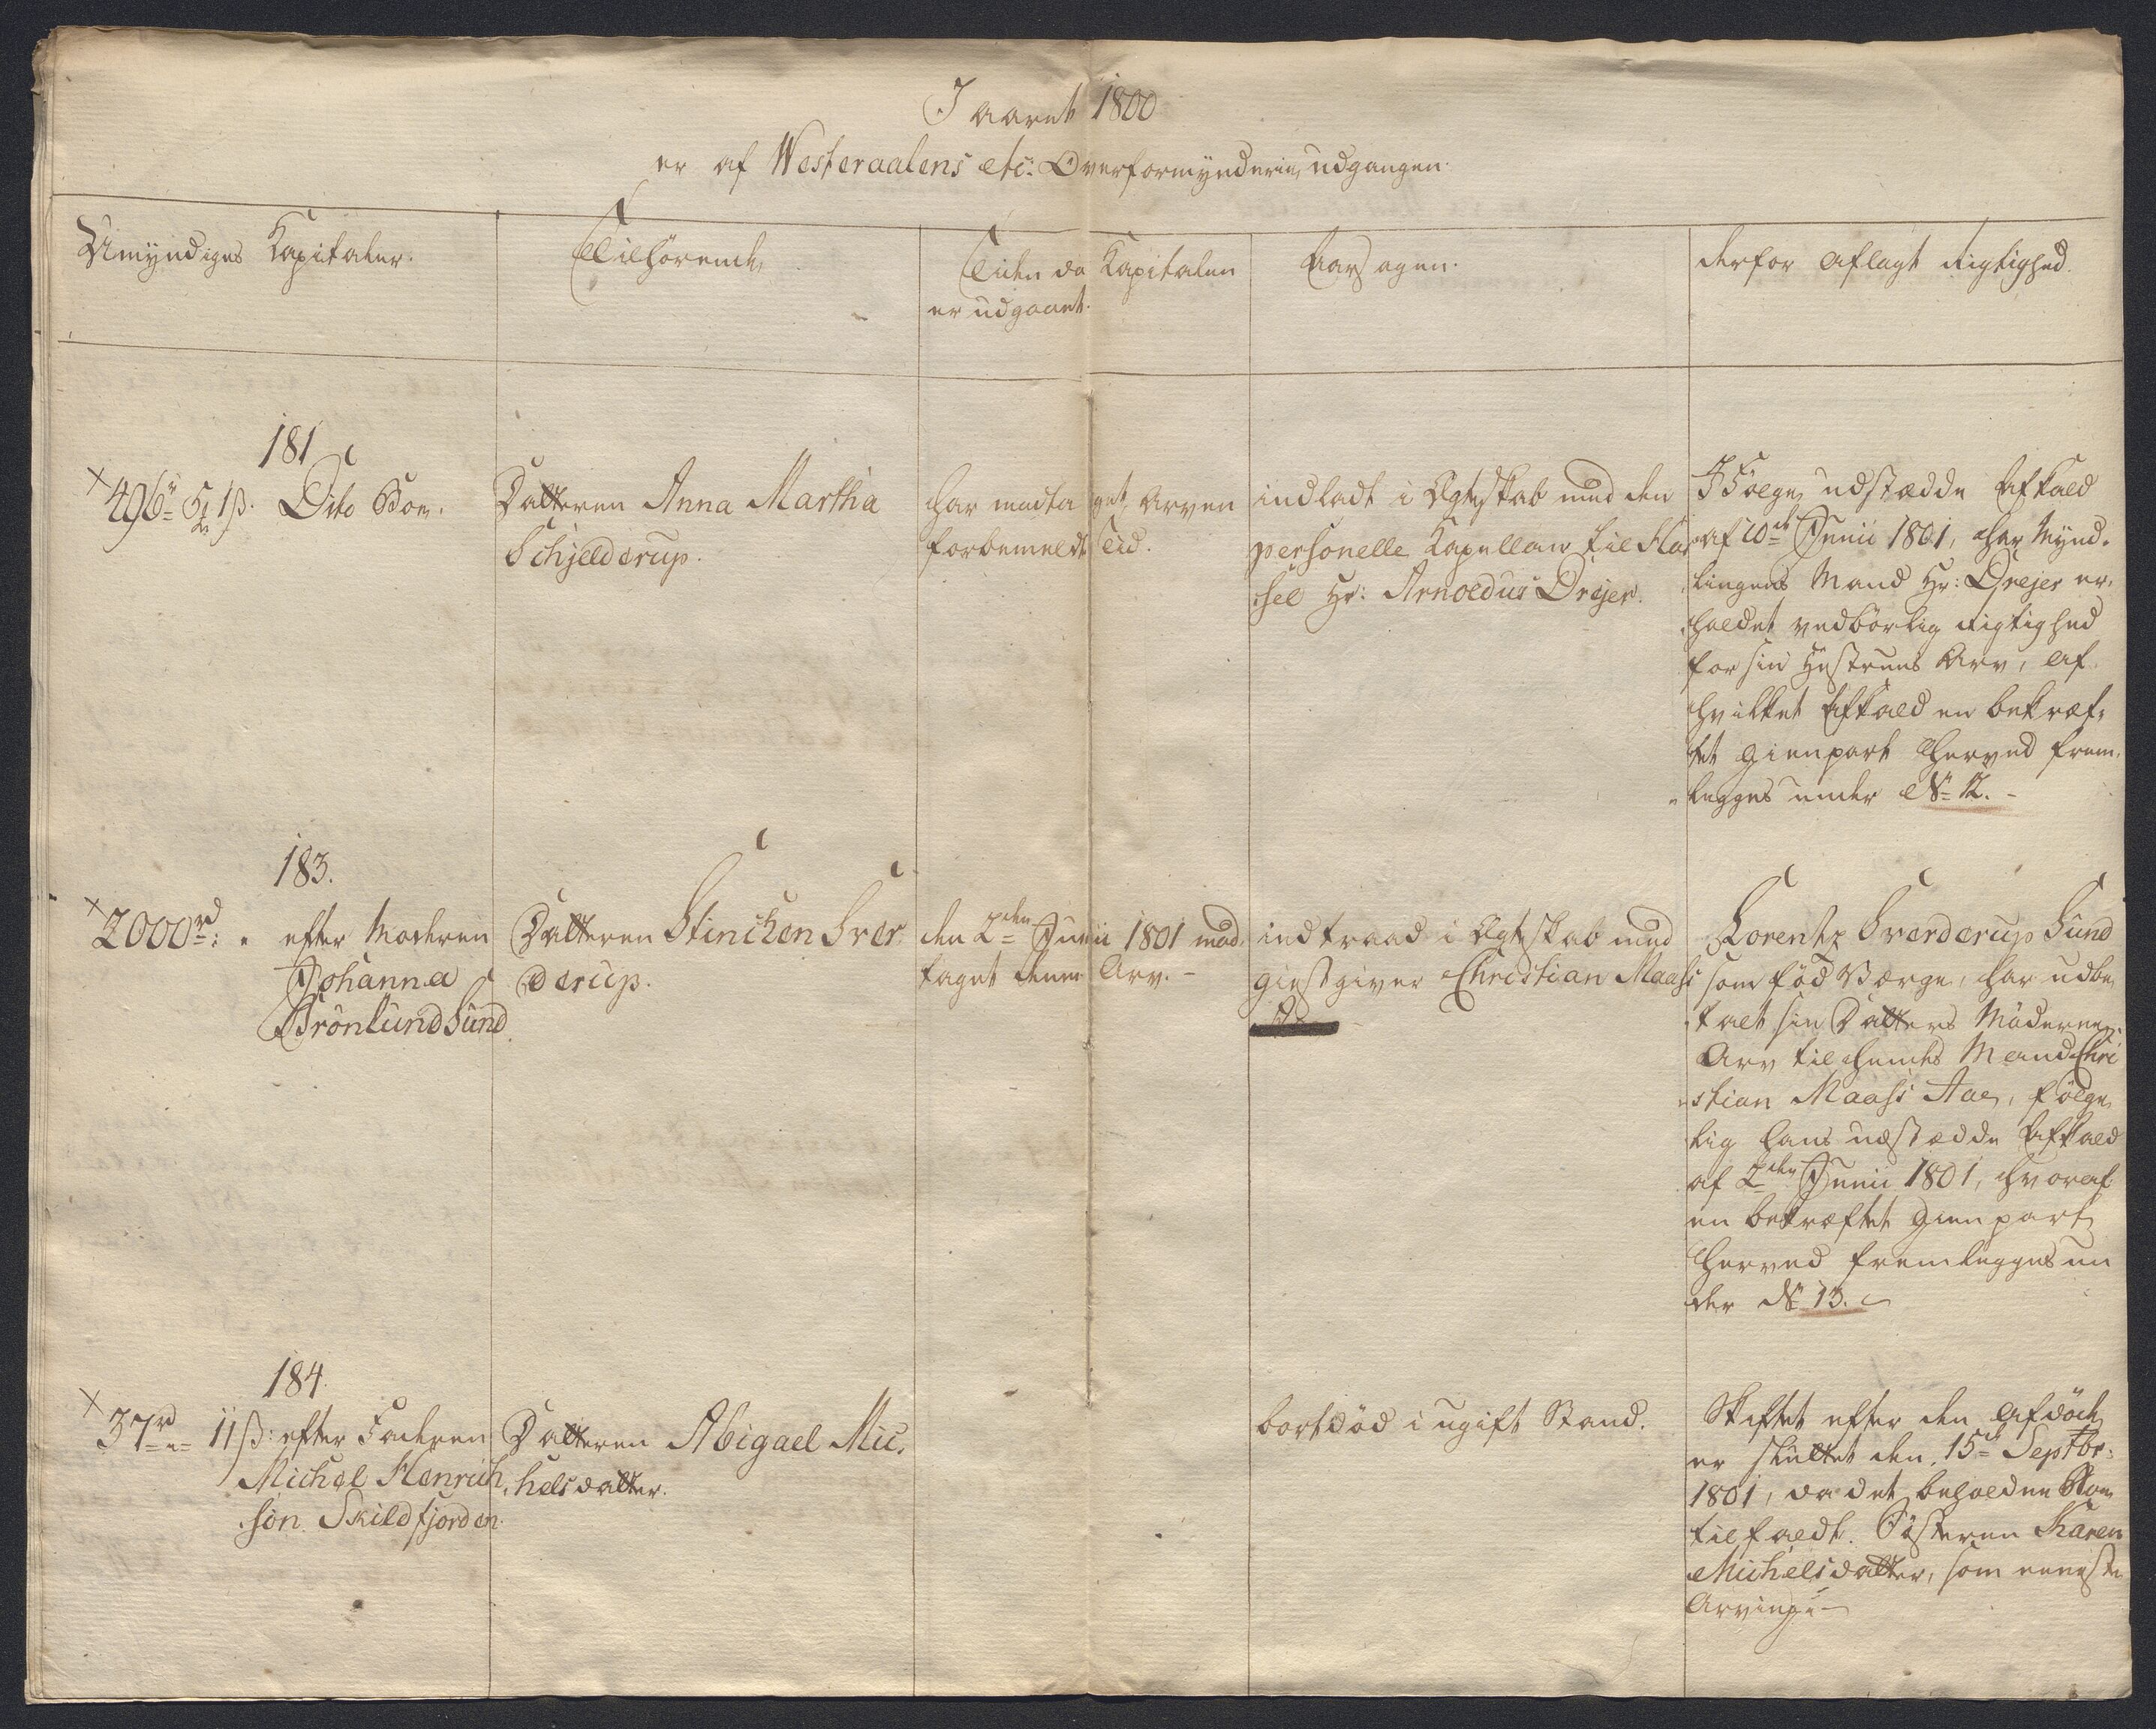 I aaret 1800
er af Westeraalens etc: Overformynderie udgangen.
Umyndiges Kapitaler.
Tilhørende
Tiden da Kapitalen
er udgaaet.
Aarsagen.
derfor aflagt Rigtighed.
181
496 5 1ß. Dito Boe.
Datteren Anna Martha
Schjelderup.
har modtaget Arven
forbemeldt Tid.
indladt i Ægteskab med den
personelle Kapellan til Has
sel Hr: Arnoldus Drejer.
I Følge udstædde Afkald
af 10de Junii 1801, har Mynd-
lingens Mand Hr: Drejer er-
holdet vedbørlig Rigtighed
for sin Hustrues Arv, af
hvilket Afkald en bekræf-
tet Gienpart herved frem-
legges under No 12.
183.
2000rd: efter Moderen
Johanna
Brönlund Sund
Datteren Stinchen Sver
derup.
den 2den Junii 1801 mod-
taget denne Arv.
indtraad i Ægteskab med
Giestgiver Christian Maass
Lorentz Sverderup Sund
som fød Værge, har udbe
talt sin Datters Møderne
Arv til hendes Mand Chri
stian Maass Aae, følge
lig hans udstædde Afkald
af 2den Junii 1801, hvoraf
en bekræftet Gienpart
herved fremlegges un
der No 13.
184.
37rd 11ß: efter Faderen
Michel Henrich
sön Skildfjorden.
Datteren Abigael Mic
helsdatter.
bortdød i ugift Stand.
Skiftet efter den afdøde
er sluttet den 15de Septbr:
1801, da det beholdne Boe
tilfaldt Søsteren Karen
Michelsdatter, som eeneste
Arving.